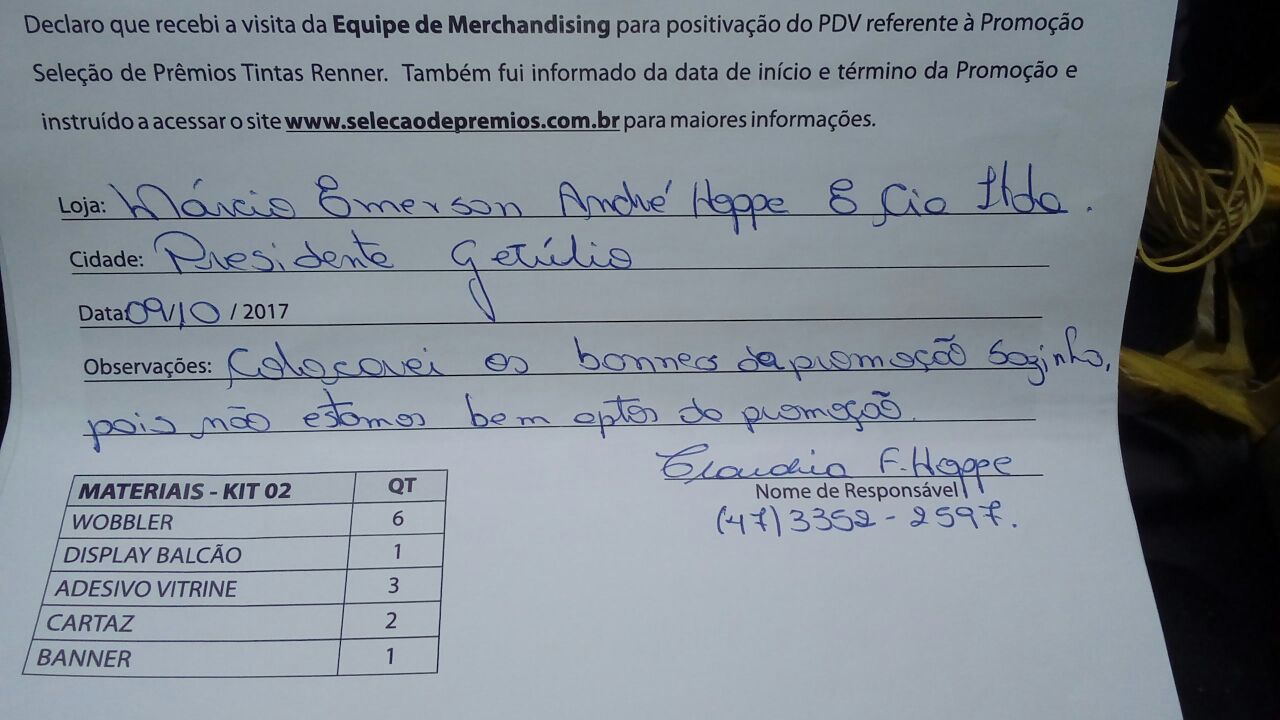 Declaro que recebi a visita da Equipe de Merchandising para positivação do PDV referente à Promoção
Seleção de Prêmios Tintas Renner. Também fui informado da data de início e término da Promoção e
instruído a acessar o site www.selecaodepremios.com.br para maiores informações.
Loja: Márcio Emerson André Hoppe & Cia Ltda.
Cidade: Presidente Getúlio
Data: 09/10 / 2017
Observações: Colocarei os banners da promoção sozinho,
pois não estamos bem aptos da promoção.
Claudia F. Hoppe
Nome de Responsável
(47) 3352-2597.
MATERIAIS - KIT 02 QT
WOBBLER 6
DISPLAY BALCÃO 1
ADESIVO VITRINE 3
CARTAZ 2
BANNER 1